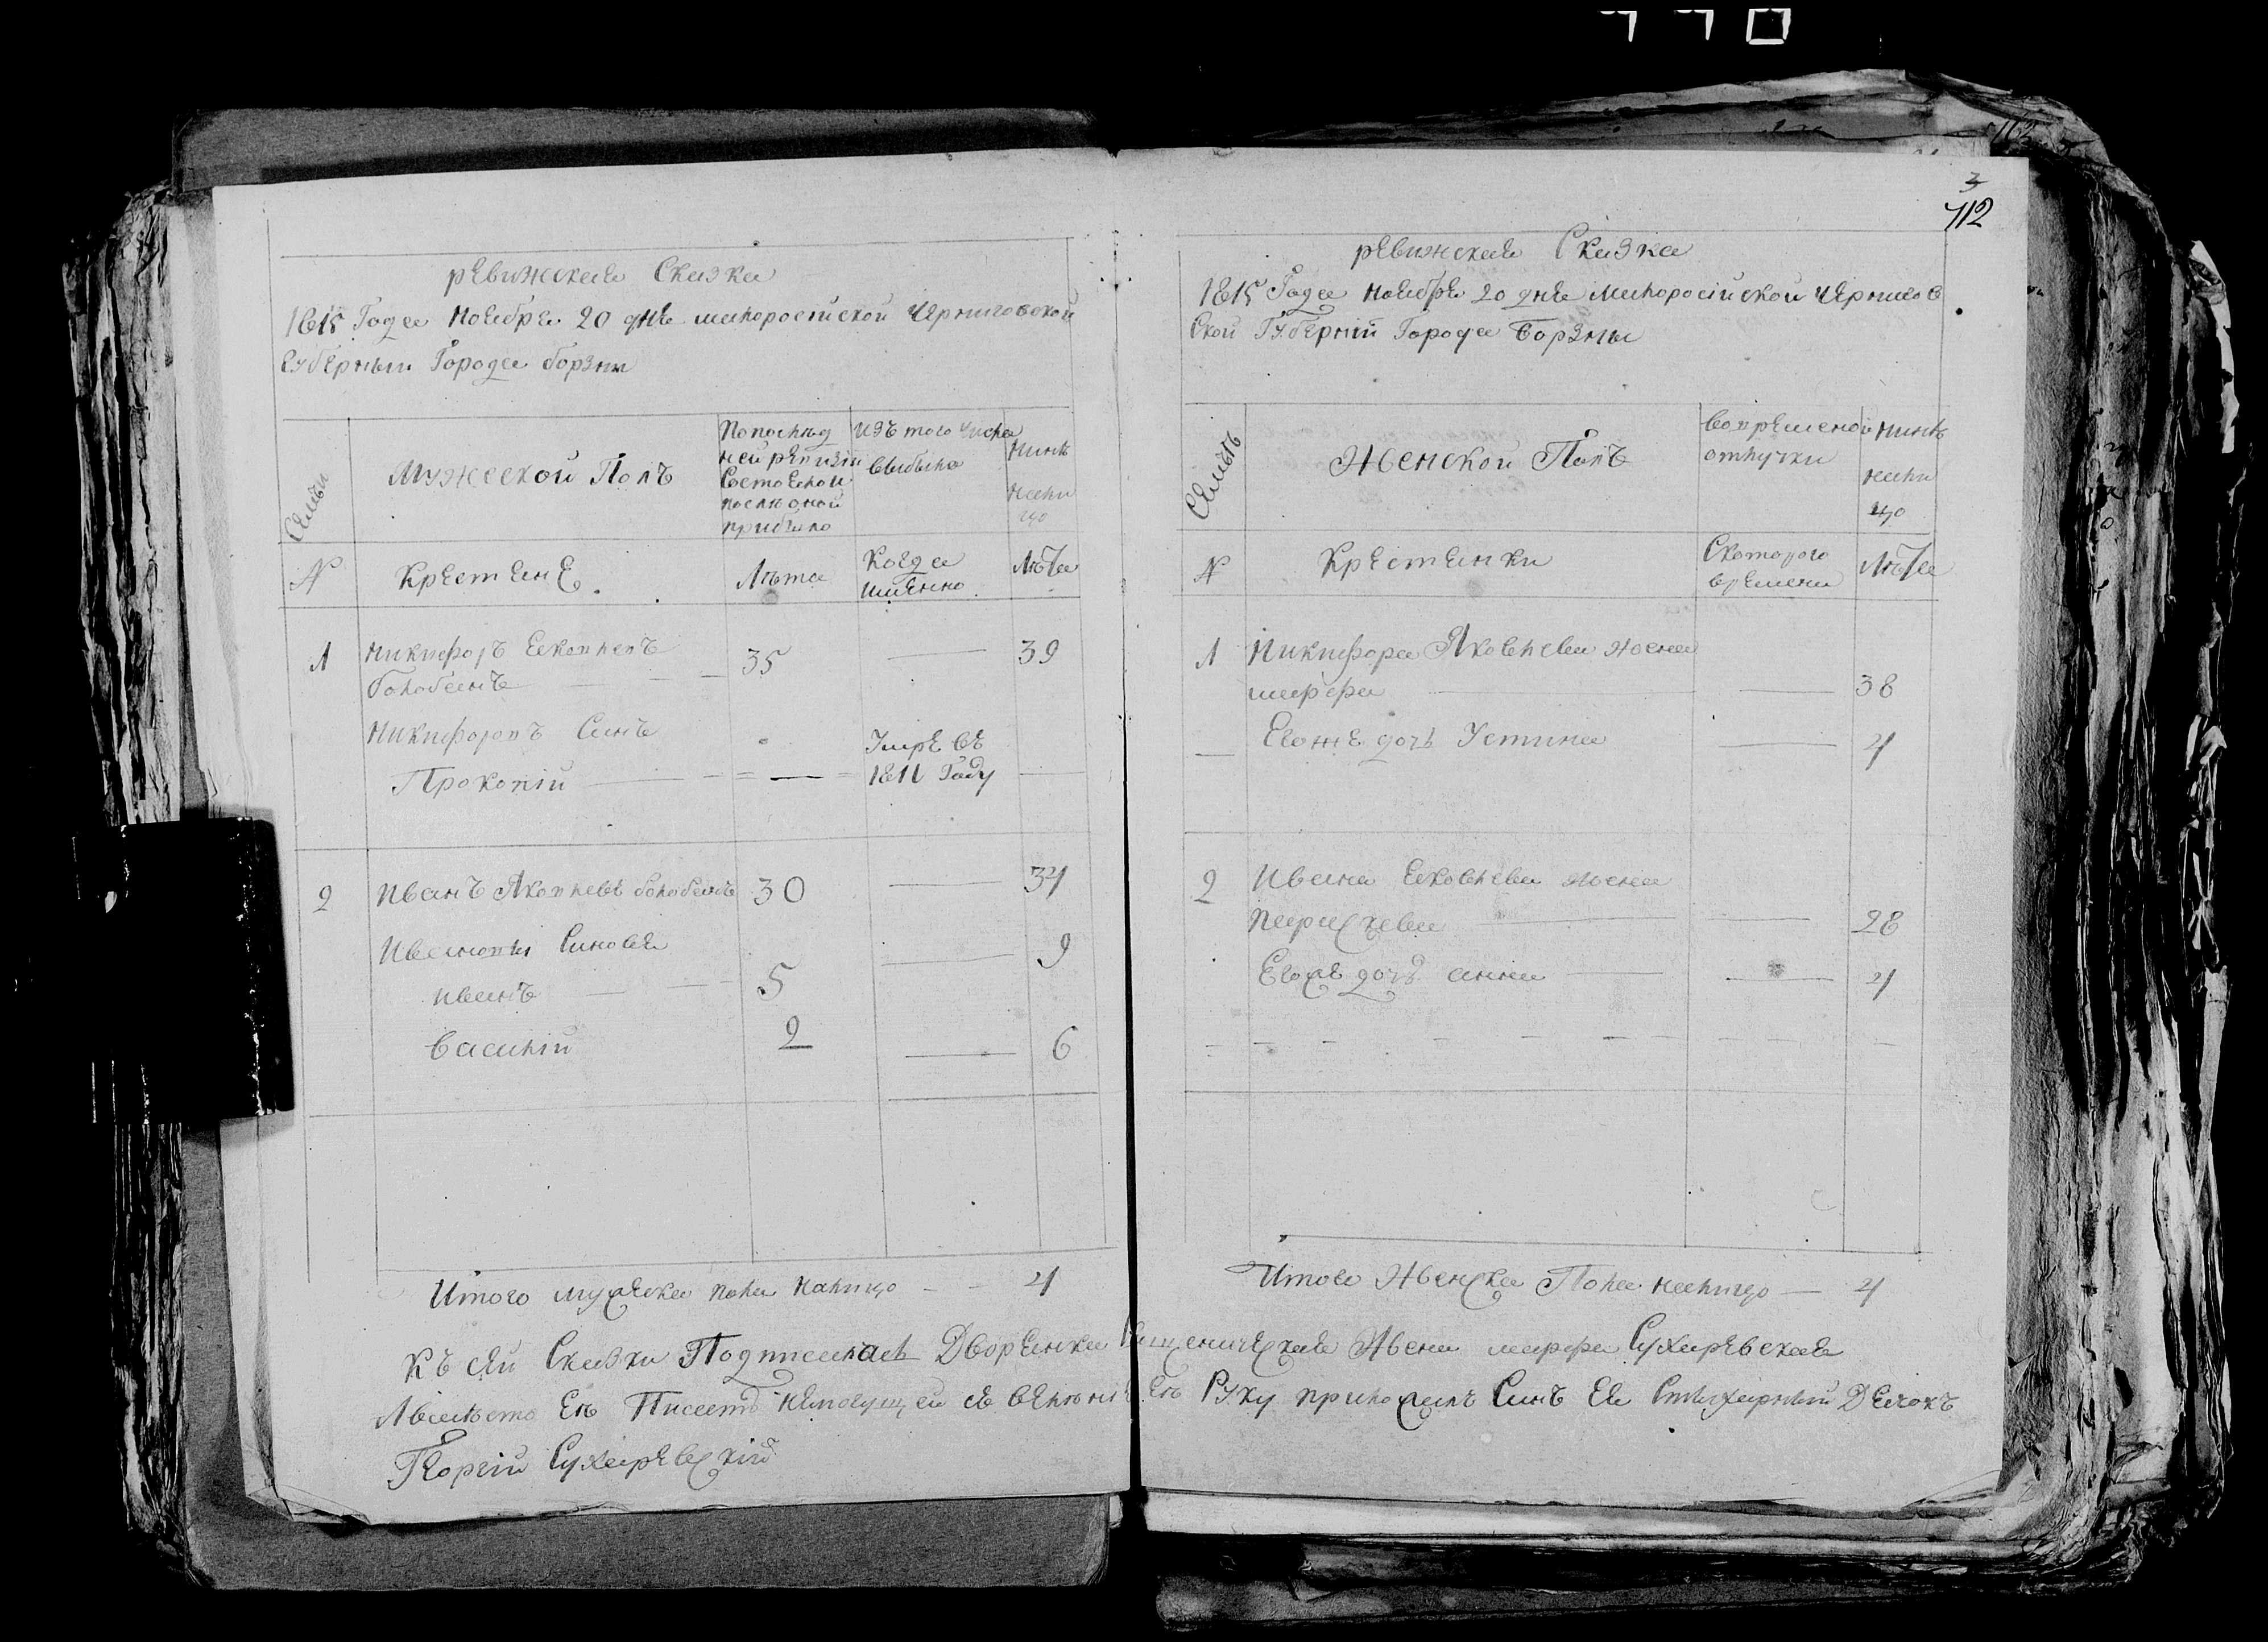 3
712
ревижская Сказка
1815 Года ноября 20 дня малоросийской черниговской
губерныи Города борзны
Семьи
Мужеской Полъ
По послѣд
ней ревизіи
Состоялои
послѣ оной
прибыло
изъ того числа
выбыло
Нинѣ
нали
цо
№
Крестяне
Лѣта
Когда
имѣнно
Лѣта
1 никифоръ яковлевъ
болобанъ 35 39
никифоровъ Синъ
Прокопій
Умре въ
1811 Году
2 иванъ Яковлевъ болобанъ 30 34
Ивановы Синовя
иванъ 5 9
василій 2 6
Итого мужеска пола налицо 4
ревижская Сказка
1815 Года ноября 20 дня малоросійской чернигов
ской Губерніи Города Борзны
Семьи
Женской Полъ
во временой
отлучки
нинѣ
нали
цо
№
Крестянки
Скоторого
времени
Лѣта
1 Никифора Яковлева жена
марфа 38
Егоже дочь Устина 4
2 Ивана яковлева жена
параскева 28
Егоже дочь анна 4
Итого Женска Пола налицо 4
Къ сей Сказки Подписалась Дворянка Священическая Жена марфа Сухаревская
Авмѣсто Еѣ Писать немогущей съ веленія Еѣ Руку приложилъ Синъ Ея Стихарный Дячокъ
Георгій Сухаревскій